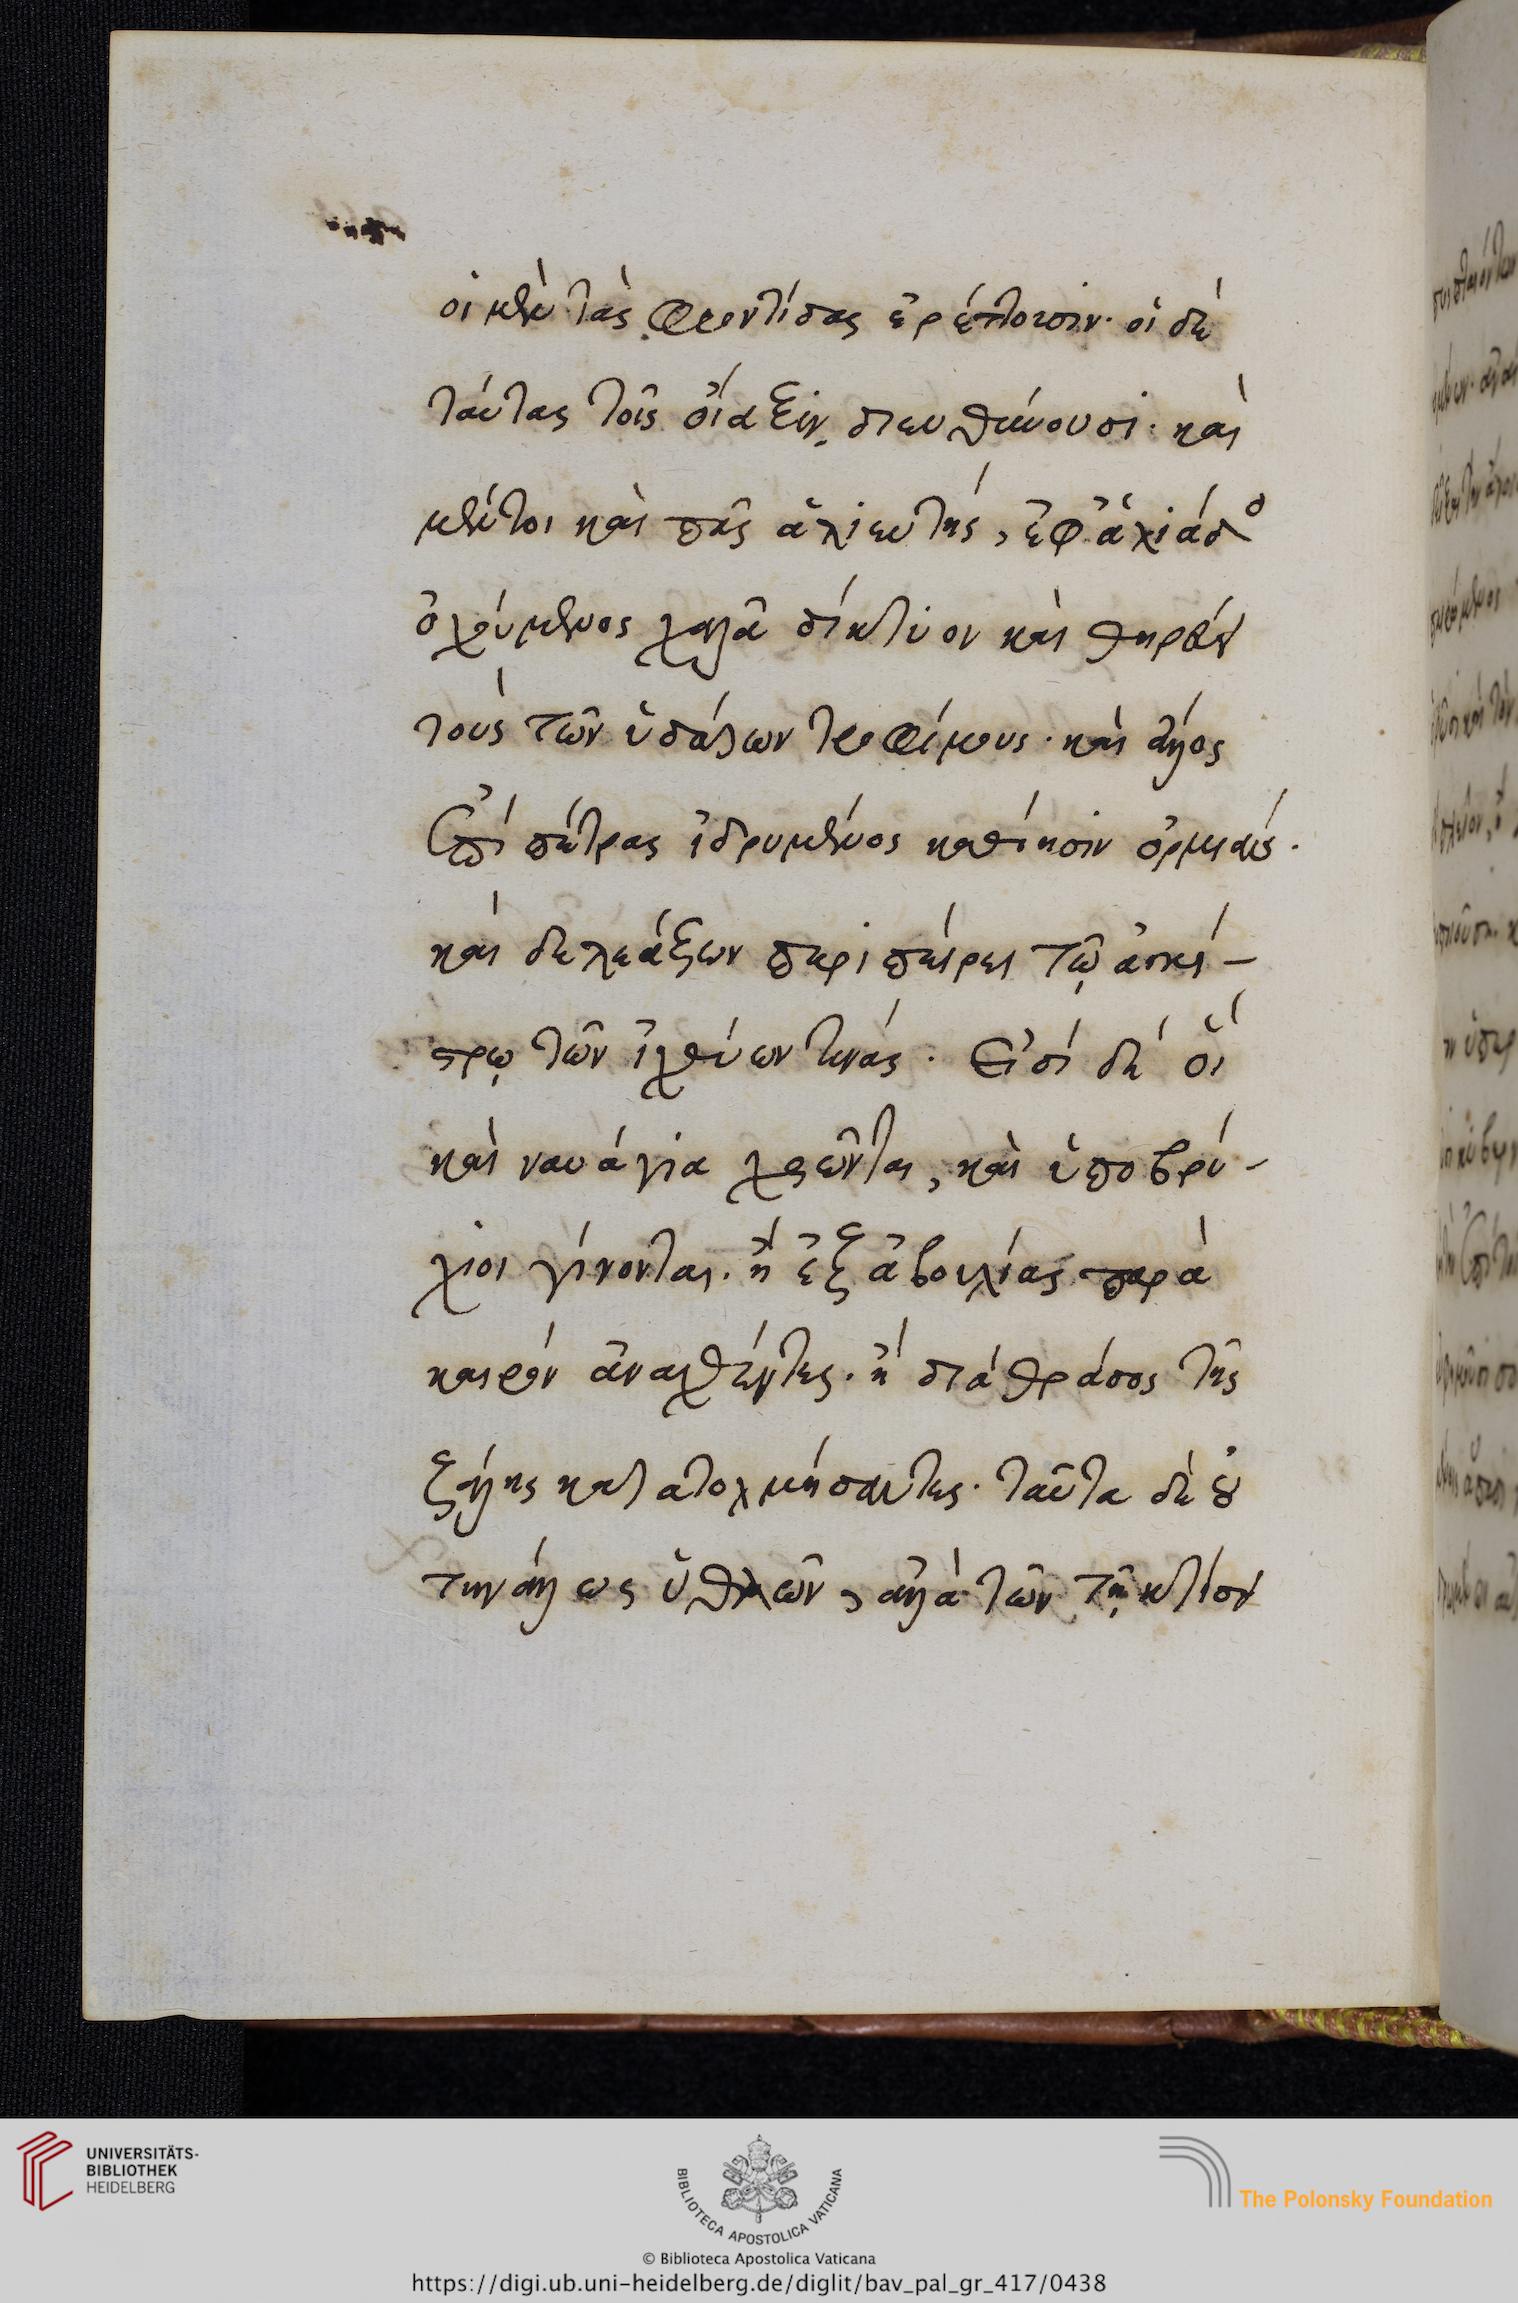 οἱ μὲν τὰς φροντίδας ἐρέπτουσιν· οἱ δὲ
ταύτας τοῖς οἴαξιν διευθύνουσι· καὶ
μέντοι καὶ πᾶς ἁλιευτής, ἐφ' ἁλιάδο
ὀχούμενος χαλᾶ δίκτυον καὶ θηρᾶν
τοὺς τῶν ὑδάτων τροφίμους· καὶ ἄλλος
ἐπὶ πέτρας ἱδρυμένος καθίησιν ὁρμιάς·
καὶ δελεάζων περιπείρει τῷ ἀγκί-
στρῳ τῶν ἰχθύων τινάς· εἰσί δέ οἳ
καὶ ναυάγια χρῶνται, καὶ ὑποβρύ-
χιοι γίνονται· ἢ ἐξ ἀβουλίας παρὰ
καιρὸν ἀναχθέντες· ἢ διὰ θράσος τῆς
ζάλης κατατολμήσαντες· ταῦτα δὲ οὐ
τηνάλλως ὑθλῶν, ἀλλὰ τῶν τῇ κτίσει
UNIVERSITÄTS-
BIBLIOTHEK
HEIDELBERG
BIBLIOTECA APOSTOLICA VATICANA
The Polonsky Foundation
© Biblioteca Apostolica Vaticana
https://digi.ub.uni-heidelberg.de/diglit/bav_pal_gr_417/0438